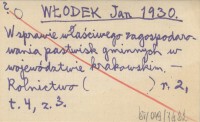 WŁODEK Jan 1930.
W sprawie właściwego zagospodaro-
wania pastwisk gminnych w
województwie krakowskim. —
Rolnictwo ( ) r. 2,
t. 4, z. 3.